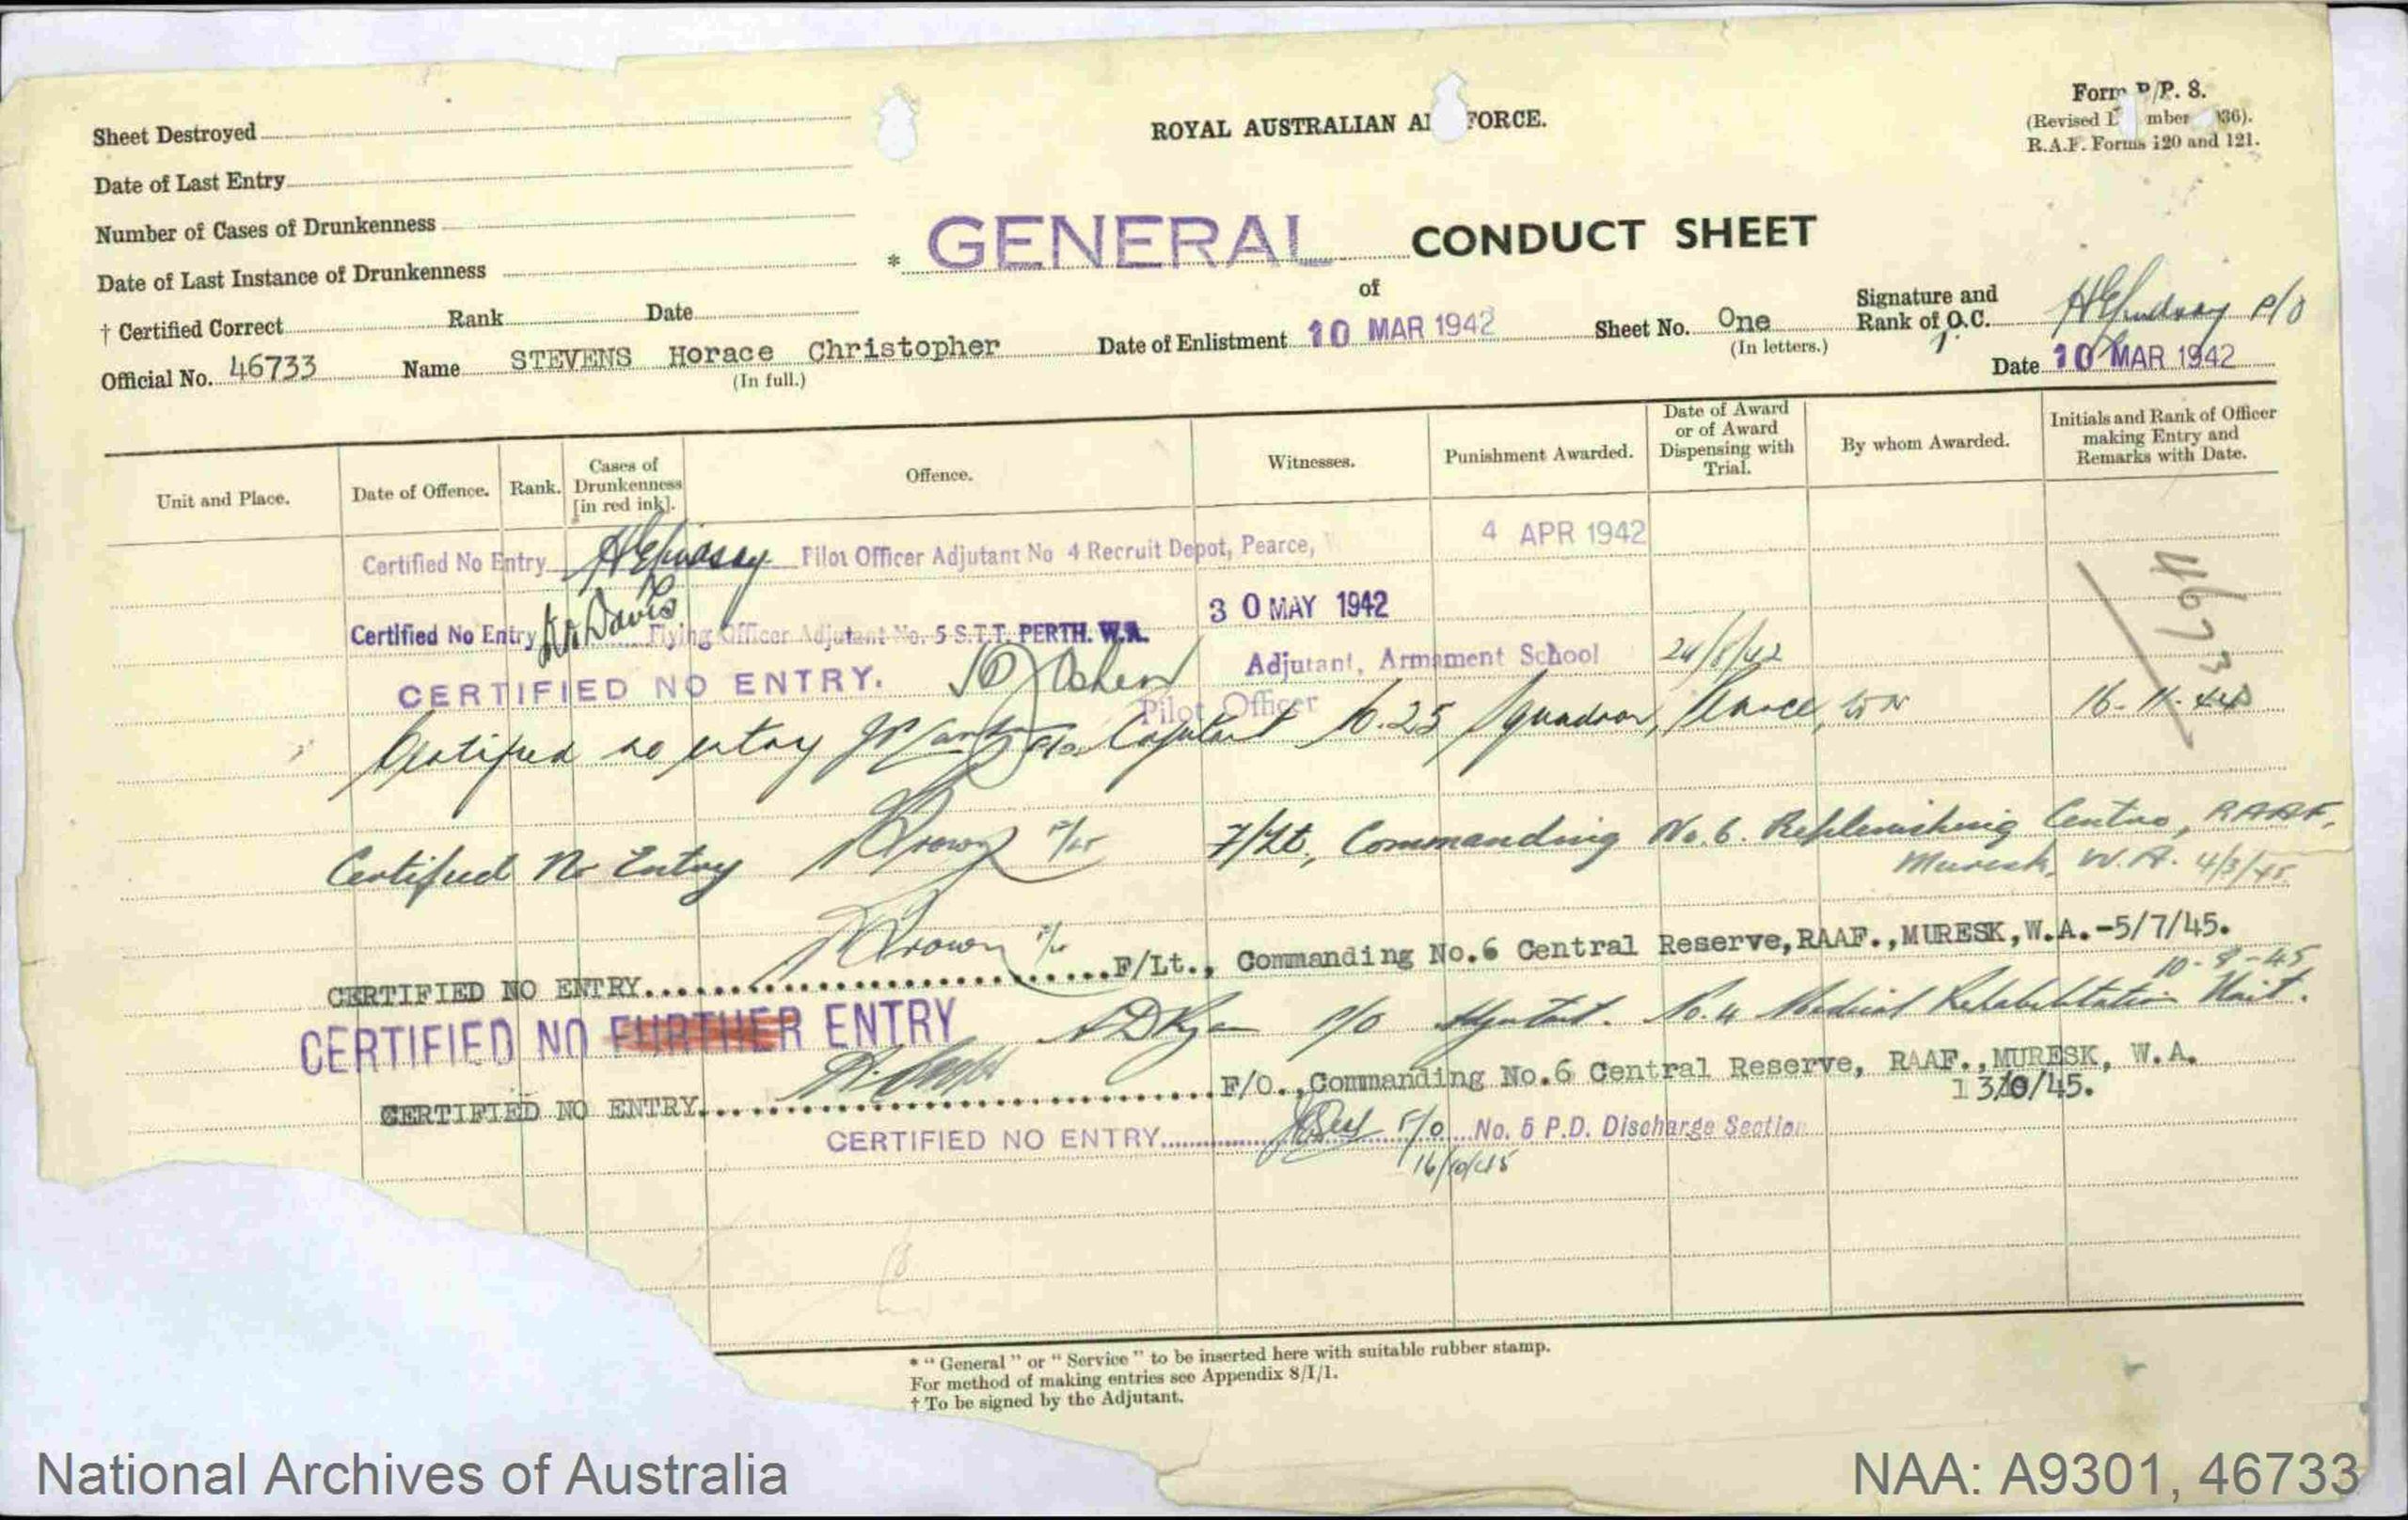 Sheet Destroyed
Date of Last Entry
Number of Cases of Drunkenness
Date of Last Instance of Drunkenness
† Certified Correct Rank Date
ROYAL AUSTRALIAN AI FORCE.
Form P/P. 8.
(Revised mber 36).
R.A.F. Forms 120 and 121.
* GENERAL CONDUCT SHEET
of
Official No. 46733 Name STEVENS Horace Christopher
(In full.)
Date of Enlistment 10 MAR 1942 Sheet No. One
(In letters.)
Signature and
Rank of O.C. P/O
Date 10 MAR 1942
Unit and Place. Date of Offence. Rank. Cases of Drunkenness [in red ink]. Offence. Witnesses. Punishment Awarded. Date of Award or of Award Dispensing with Trial. By whom Awarded. Initials and Rank of Officer making Entry and Remarks with Date.
Certified No Entry Pilot Officer Adjutant No 4 Recruit Depot, Pearce, 4 APR 1942
46733
Certified No Entry Davis Flying Officer Adjutant No. 5 S.T.T. PERTH. W.A. 30 MAY 1942
CERTIFIED NO ENTRY. Adjutant, Armament School 24/8/42
Pilot Officer
Certified no entry 25 Squadron, Pearce,
Certified No Entry Brown F/Lt, Commanding No. 6. Replenishing Centre, RAAF,
Muresk, W.A. 4/3/45
CERTIFIED NO ENTRY Brown F/Lt., Commanding No.6 Central Reserve, RAAF., MURESK, W.A.-5/7/45.
CERTIFIED NO FURTHER ENTRY P/O Adjutant. No. 4 Medical Rehabilitation Unit.
CERTIFIED NO ENTRY F/O., Commanding No.6 Central Reserve, RAAF., MURESK, W.A.
CERTIFIED NO ENTRY F/O No. 5 P.D. Discharge Section
16/10/45
* "General" or "Service" to be inserted here with suitable rubber stamp.
For method of making entries see Appendix 8/I/1.
† To be signed by the Adjutant.
National Archives of Australia
NAA: A9301, 46733